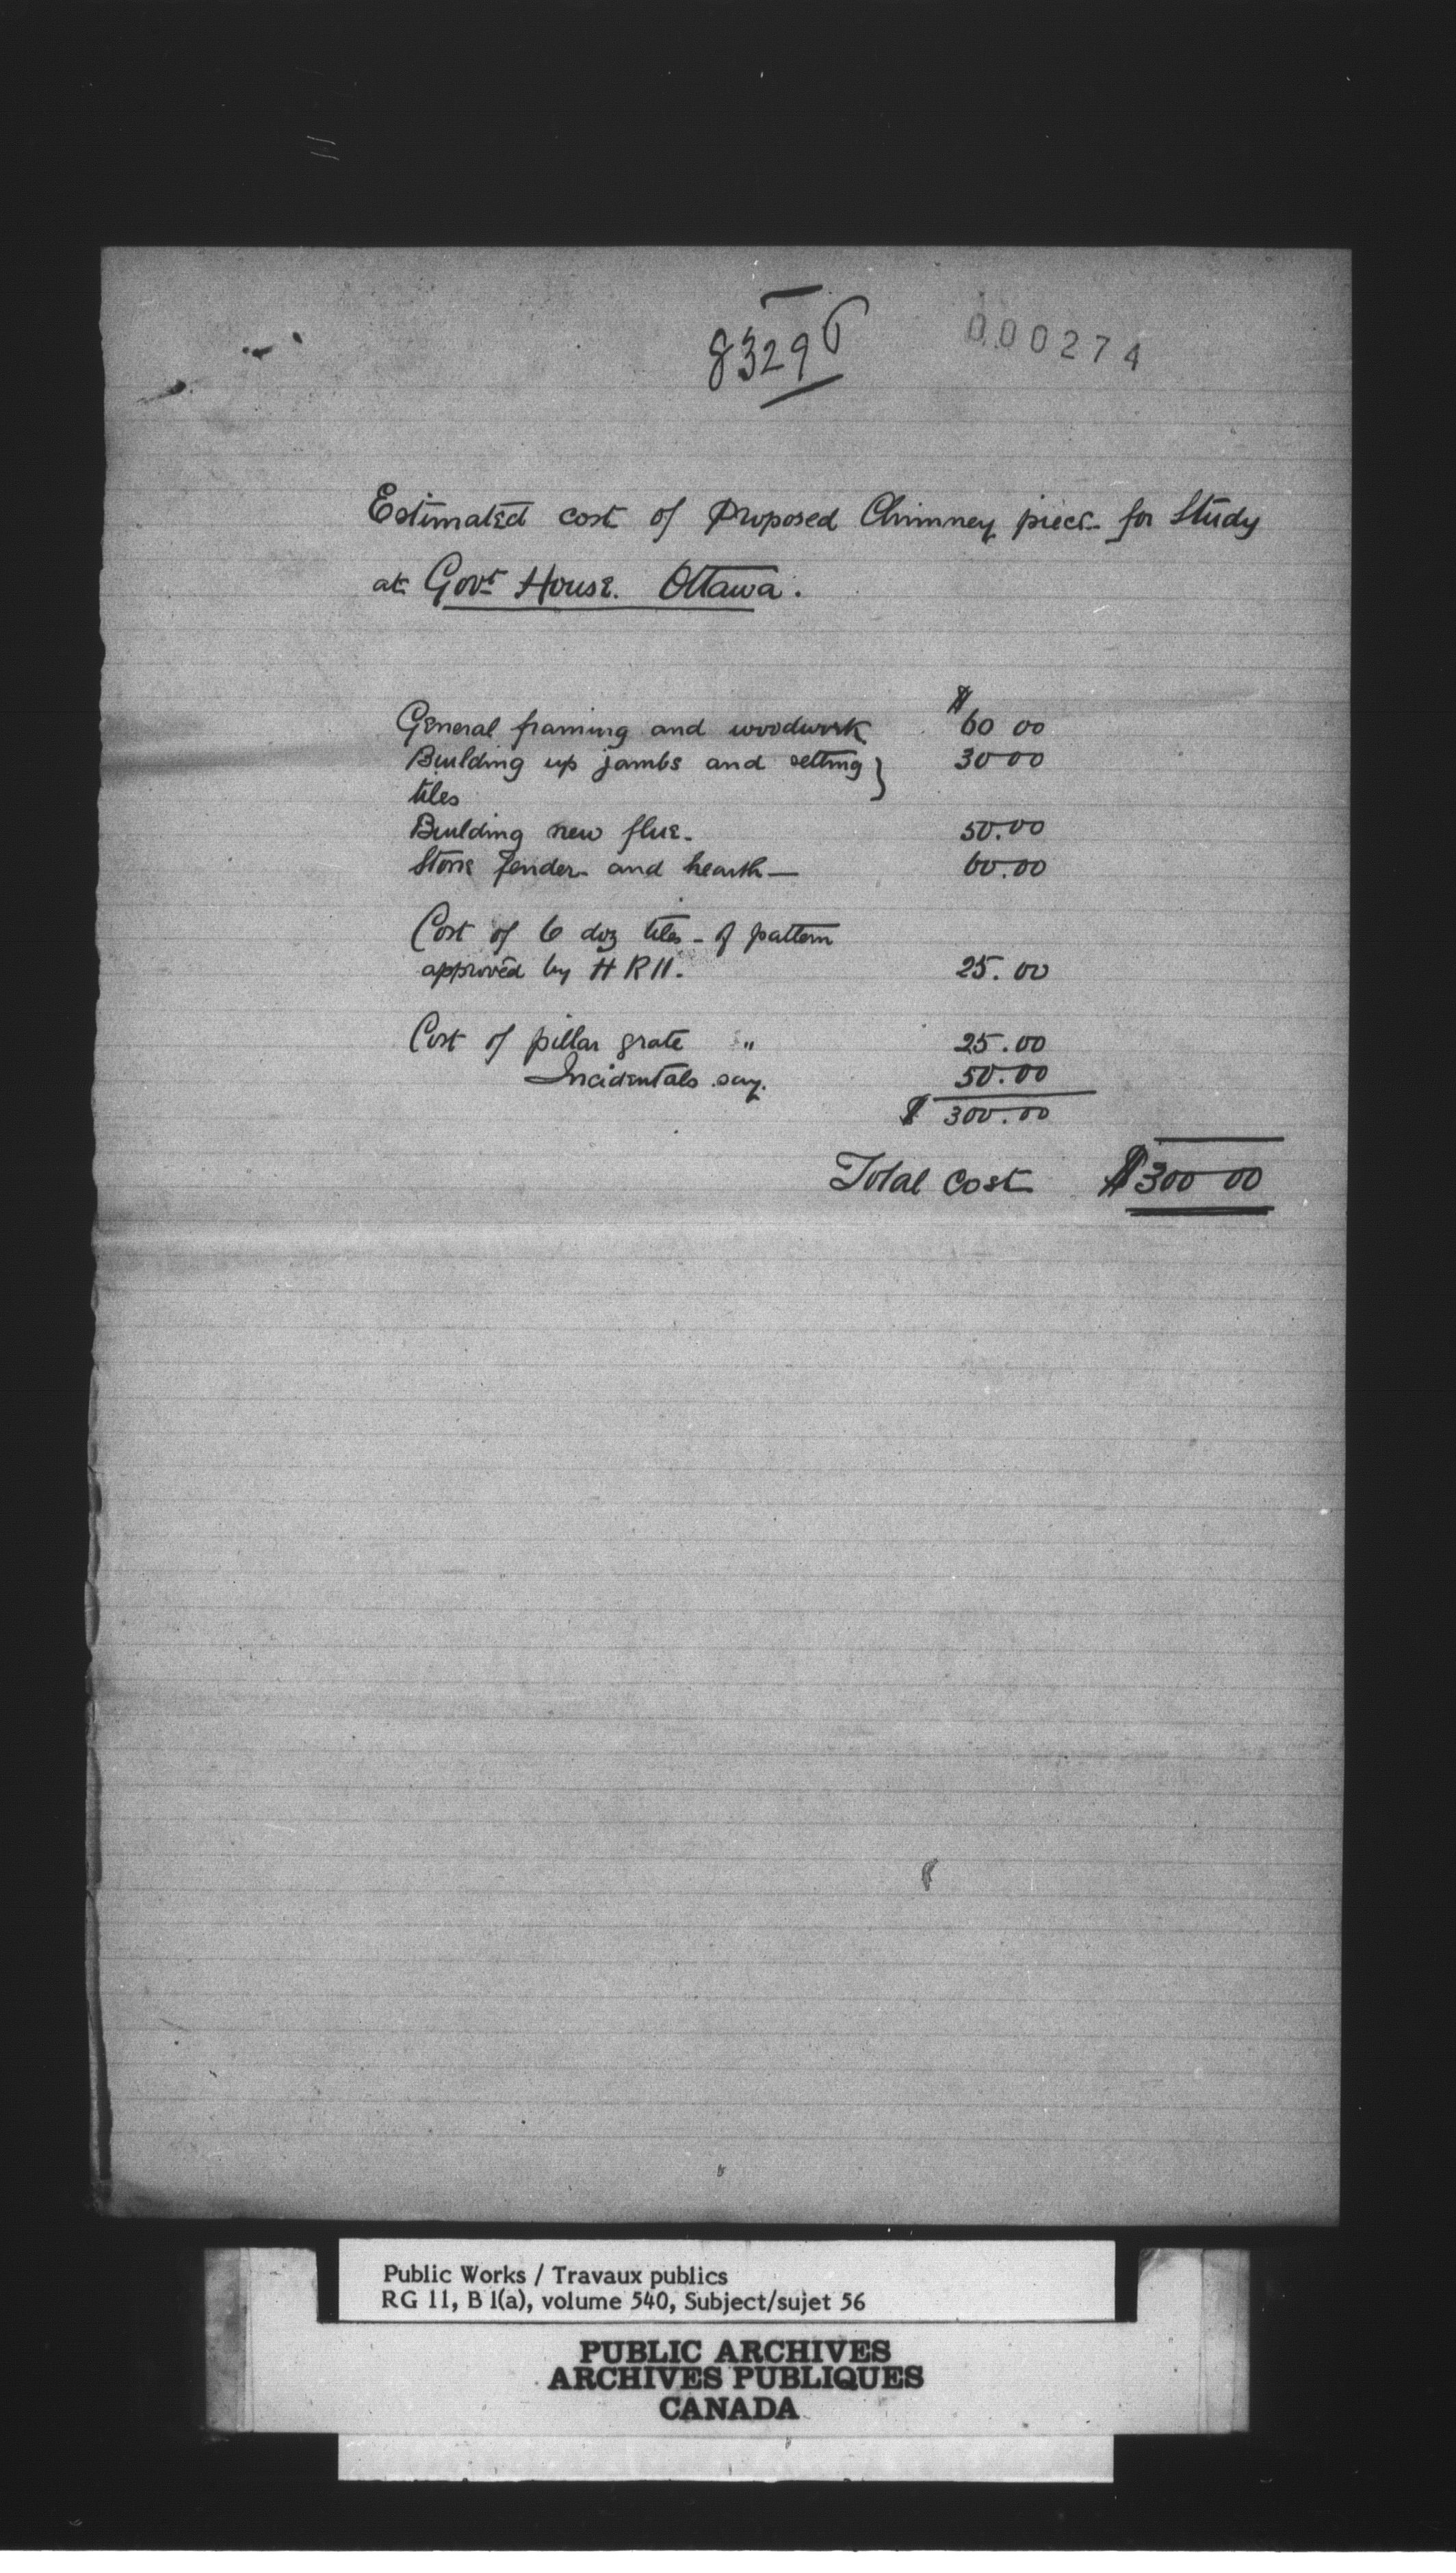 83296
000274
Estimated cost of Proposed Chimney piece for Study
at Govt House. Ottawa.
$
General framing and woodwork 60 00
Building up jambs and setting } 30 00
tiles
Building new flue. 50.00
Stone fender and hearth — 60.00
Cost of 6 doz tiles - of pattern
approved by H R H. 25.00
Cost of pillar grate " 25.00
Incidentals say. 50.00
$ 300.00
Total cost $300 00
Public Works / Travaux publics
RG 11, B 1(a), volume 540, Subject/sujet 56
PUBLIC ARCHIVES
ARCHIVES PUBLIQUES
CANADA